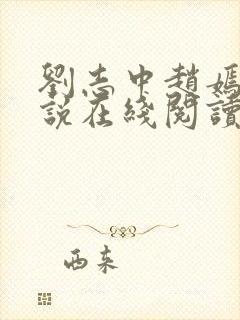 劉志中趙嫣
說在綫閱讀
西来